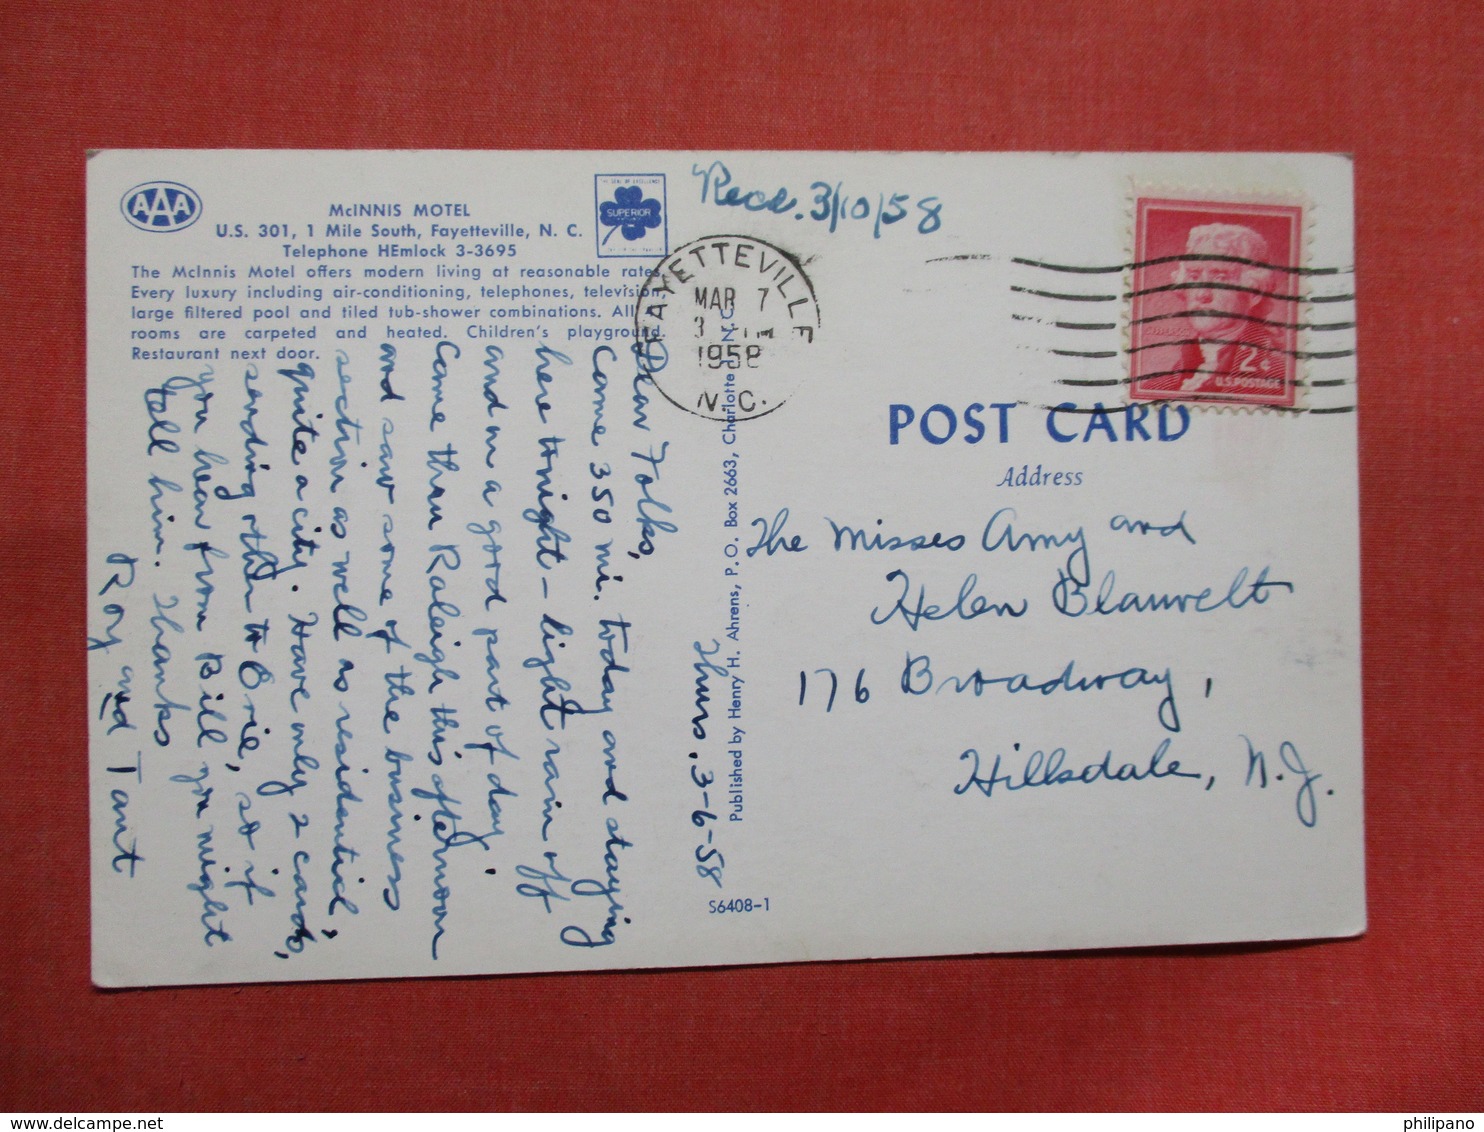 AAA
McINNIS MOTEL
U.S. 301, 1 Mile South, Fayetteville, N. C.
Telephone HEmlock 3-3695
The McInnis Motel offers modern living at reasonable rates.
Every luxury including air-conditioning, telephones, television,
large filtered pool and tiled tub-shower combinations. All
rooms are carpeted and heated. Children's playground.
Restaurant next door.
SUPERIOR
Recd. 3/10/58
FAYETTEVILLE
MAR 7
3
1958
N.C.
2¢
U.S. POSTAGE
POST CARD
Address
The Misses Amy and
Helen Blauvelt
176 Broadway,
Hillsdale, N.J.
Thurs. 3-6-58
Dear Folks,
Came 350 mi. today and staying
here tonight – light rain off
and on a good part of day.
Came thru Raleigh this afternoon
and saw some of the business
section as well as residential,
quite a city. Have only 2 cards,
sending other to Orie, so if
you hear from Bill you might
tell him. Thanks
Roy and Tant
Published by Henry H. Ahrens, P.O. Box 2663, Charlotte, N.C.
S6408-1
philipano
delcampe.net